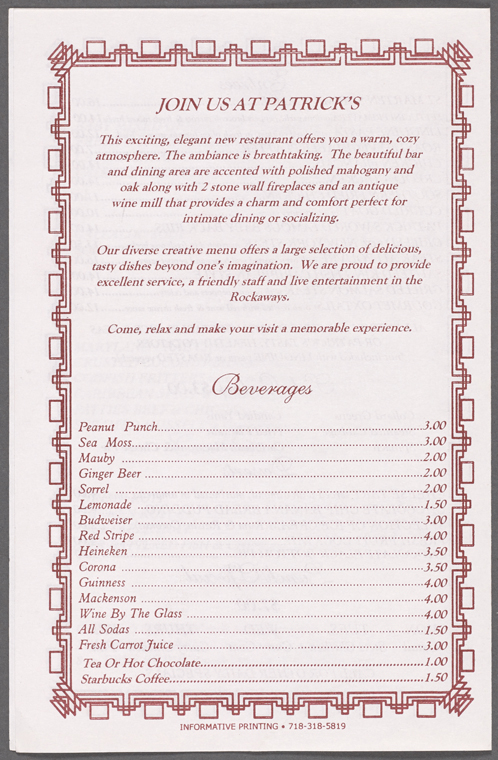 JOIN US AT PATRICK'S
This exciting, elegant new restaurant offers you a warm, cozy
atmosphere. The ambiance is breathtaking. The beautiful bar
and dining area are accented with polished mahogany and
oak along with 2 stone wall fireplaces and an antique
wine mill that provides a charm and comfort perfect for
intimate dining or socializing.
Our diverse creative menu offers a large selection of delicious,
tasty dishes beyond one's imagination. We are proud to provide
excellent service, a friendly staff and live entertainment in the
Rockaways.
Come, relax and make your visit a memorable experience.
Beverages
Peanut Punch....3.00
Sea Moss....3.00
Mauby ....2.00
Ginger Beer ....2.00
Sorrel ....2.00
Lemonade ....1.50
Budweiser ....3.00
Red Stripe ....4.00
Heineken ....3.50
Corona ....3.50
Guinness ....4.00
Mackenson ....4.00
Wine By The Glass ....4.00
All Sodas ....1.50
Fresh Carrot Juice ....3.00
Tea Or Hot Chocolate....1.00
Starbucks Coffee....1.50
INFORMATIVE PRINTING • 718-318-5819